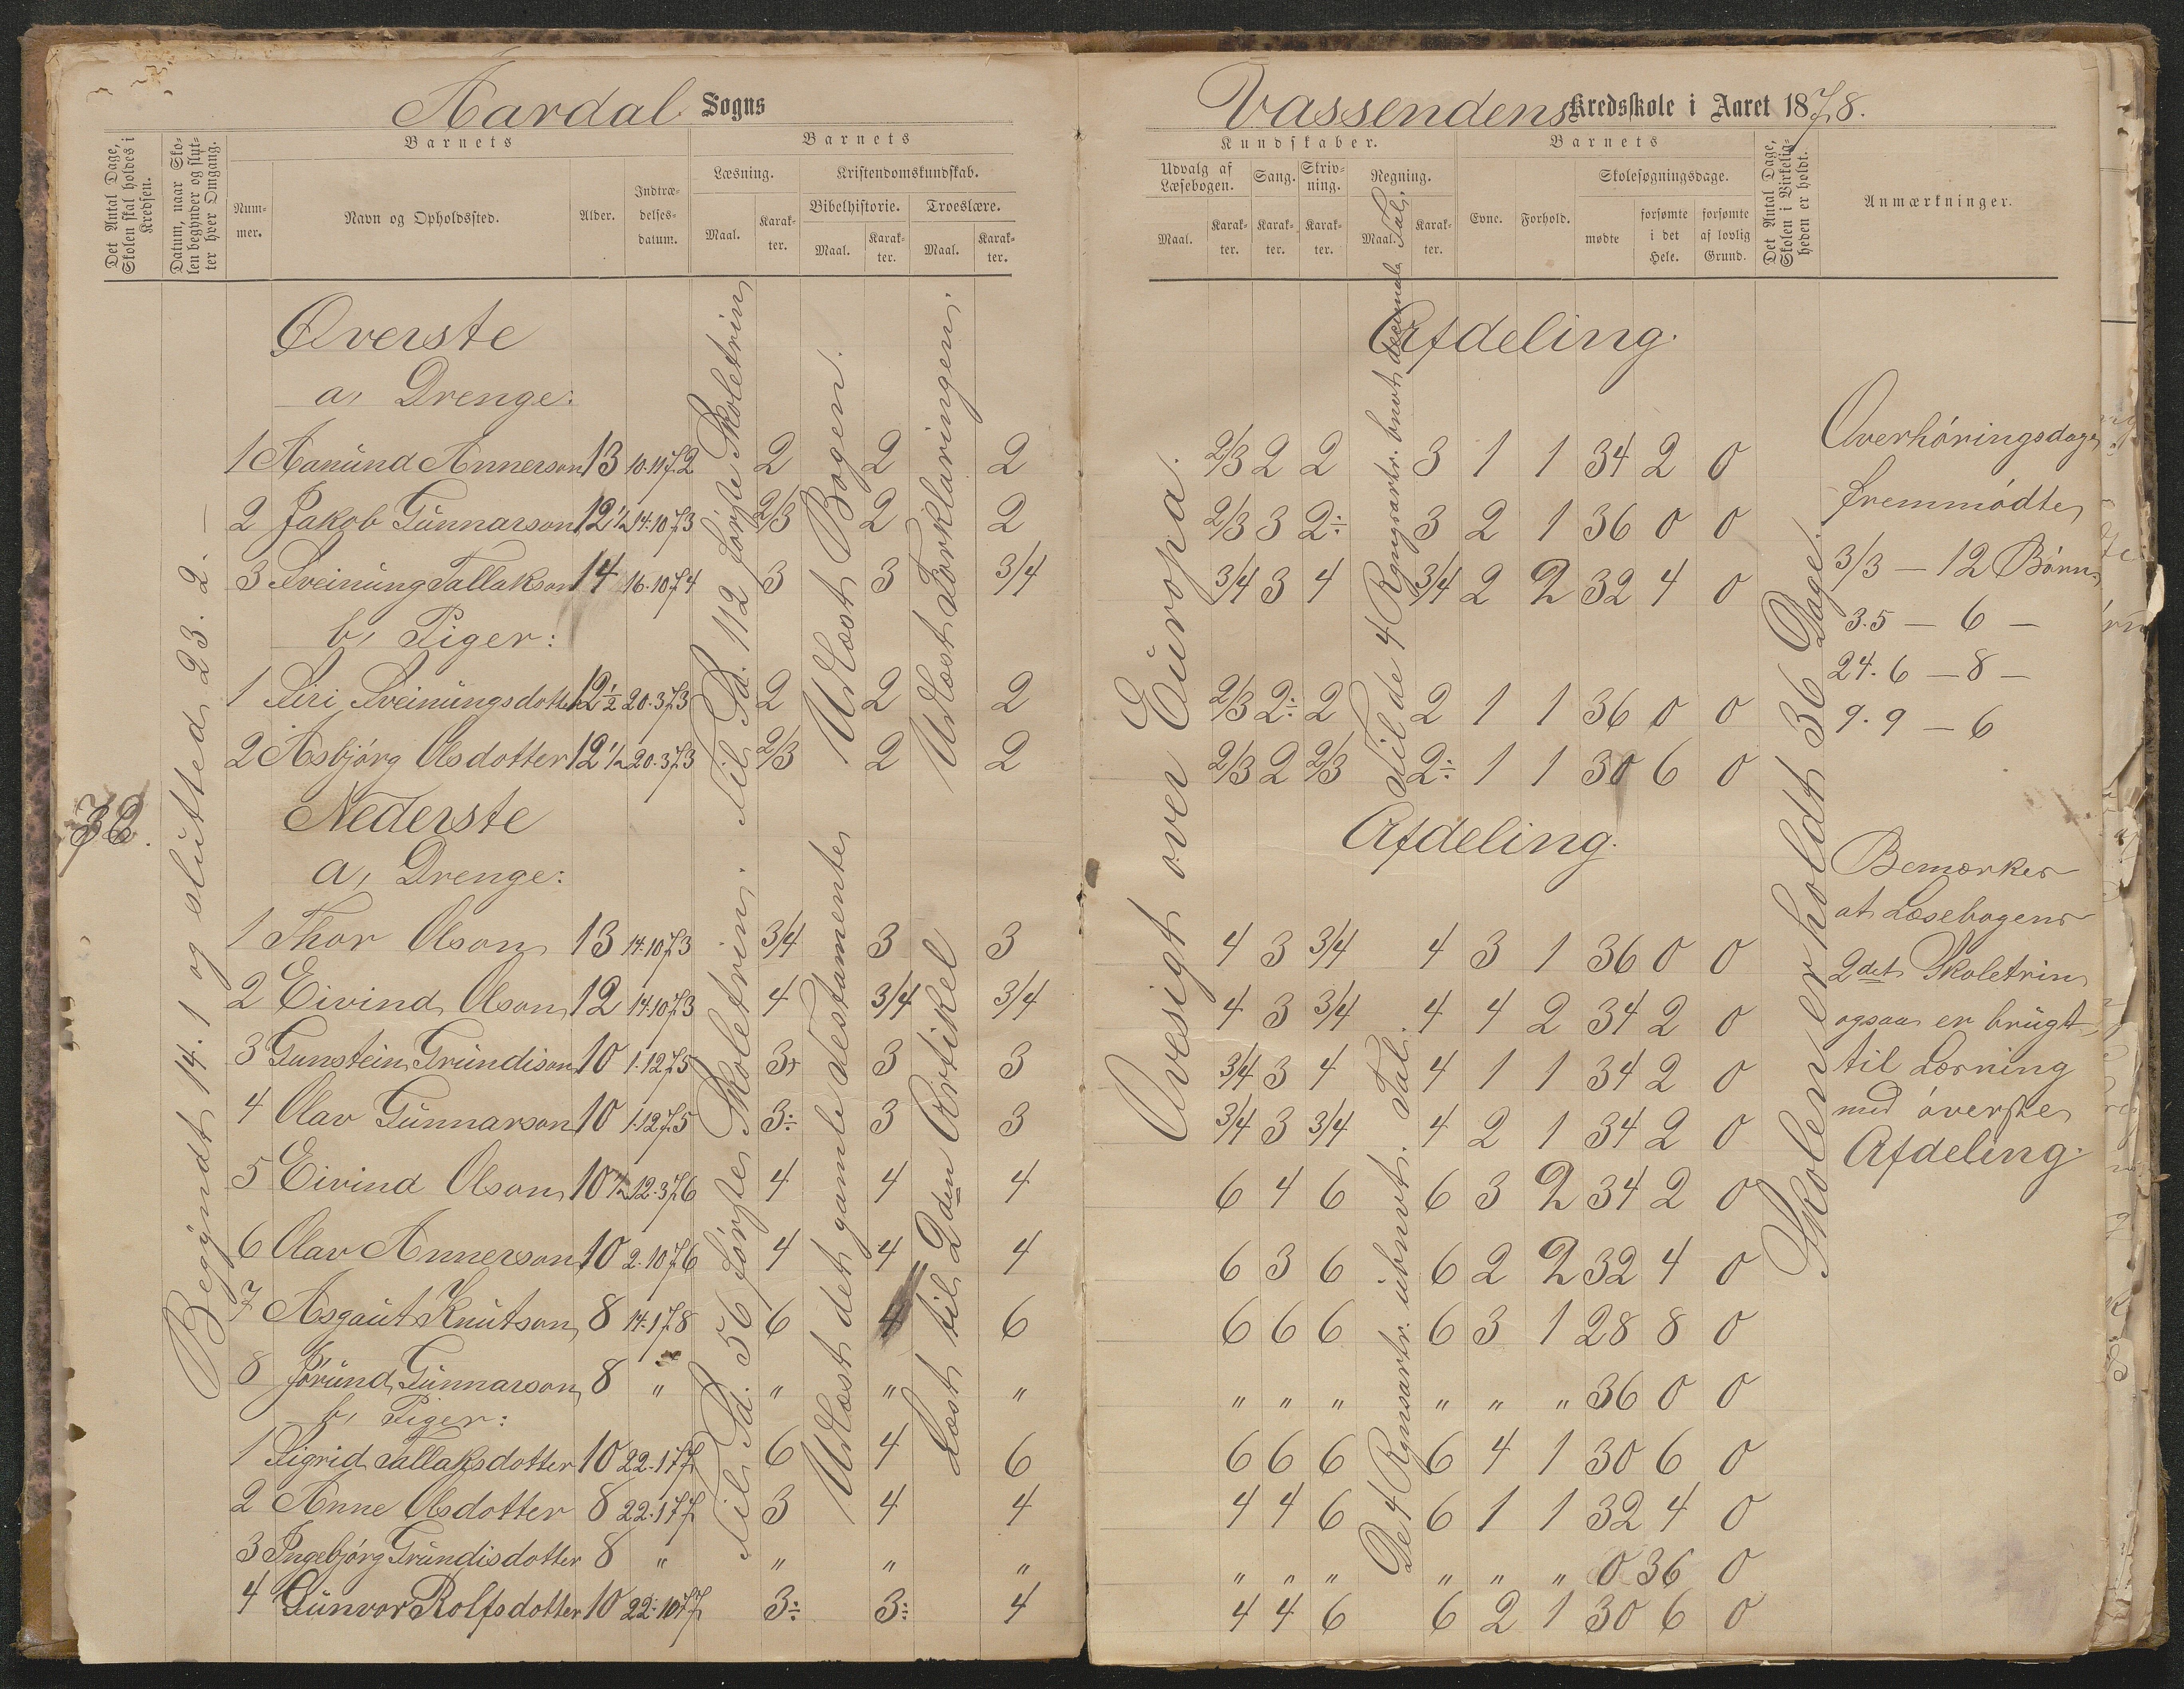 Aardal Sogns
Vassendens Kredsskole i Aaret 1878.
Det Antal Dage, Skolen skal holdes i Kredsen.
Datum, naar Skolen begynder og slutter hver Omgang.
Barnets
Nummer.
Navn og Opholdssted.
Alder.
Indtrædelsesdatum.
Barnets
Læsning.
Maal.
Karakter.
Kristendomskundskab.
Bibelhistorie.
Maal.
Karakter.
Troeslære.
Maal.
Karakter.
Kundskaber.
Udvalg af Læsebogen.
Maal.
Karakter.
Sang.
Karakter.
Skrivning.
Karakter.
Regning.
Maal.
Karakter.
Barnets
Evne.
Forhold.
Skolesøgningsdage.
mødte
forsømte i det Hele.
forsømte af lovlig Grund.
Det Antal Dage, Skolen i Virkeligheden er holdt.
Anmærkninger.
36.
Begyndt 14. 1 og slutted 23. 2. —
Øverste Afdeling.
a, Drenge:
1 Aanund Annerson 13 10.11 72 2 2 2 2/3 2 2 3 1 1 34 2 0
2 Jakob Gunnarson 12 1/2 14.10 73 2/3 2 2 2/3 3 2÷ 3 2 1 36 0 0
3 Sveinung Tallakson 14 16.10 74 3 3 3/4 3/4 3 4 3/4 2 2 32 4 0
b, Piger:
1 Siri Sveinungsdotter 12 1/2 20.3 73 2 2 2 2/3 2÷ 2 2 1 1 36 0 0
2 Asbjørg Olsdotter 12 1/2 20.3 73 2/3 2 2 2/3 2 2/3 2÷ 1 1 30 6 0
Til Sd. 112 første Skoletrin
Utlæst Bogen.
Utlæst Forklaringen.
Ovesigt over Europa.
Skolen er holdt 36 Dage.
Nederste Afdeling.
a, Drenge:
1 Thor Olson 13 14.10 73 3/4 3 3 4 3 3/4 4 3 1 36 0 0
2 Eivind Olson 12 14.10 73 4 3/4 3/4 4 3 3/4 4 4 2 34 2 0
3 Gunstein Grundison 10 1.12 75 3 3 3/4 3 4 4 1 1 34 2 0
4 Olav Gunnarson 10 1.12 75 3÷ 3 3 3/4 3 3/4 4 2 1 34 2 0
5 Eivind Olson 10 1/2 12.3 76 4 4 4 6 4 6 6 3 2 34 2 0
6 Olav Annerson 10 2.10 76 4 4 4 6 3 6 6 2 2 32 4 0
7 Asgaut Knutson 8 14.1 78 6 4 6 6 6 6 6 3 1 28 8 0
8 Jørund Gunnarson 8 " " " " " " " " " " 36 0 0
b, Piger:
1 Sigrid Tallaksdotter 10 22.1 77 6 4 6 6 6 6 6 4 1 30 6 0
2 Anne Olsdotter 8 22.1 77 3 4 4 4 4 6 6 1 1 32 4 0
3 Ingebjørg Grundisdotter 8 " " " " " " " " " " 0 36 0
4 Gunvor Rolfsdotter 10 22.10 77 3÷ 3÷ 4 4 4 6 6 2 1 30 6 0
Til Sd. 56 første Skoletrin.
Utlæst det gamle Testamente
Læst til 2den Artikel
De 4 Rgnsartr. ubnvt. Tal.
Overhøringsdage
fremmødte
3/3 — 12 Børn
3.5 — 6 —
24.6 — 8 —
9.9 — 6
Bemærkes
at Læsebogens
2det Skoletrin
ogsaa er brugt
til Læsning
med øverste
Afdeling.